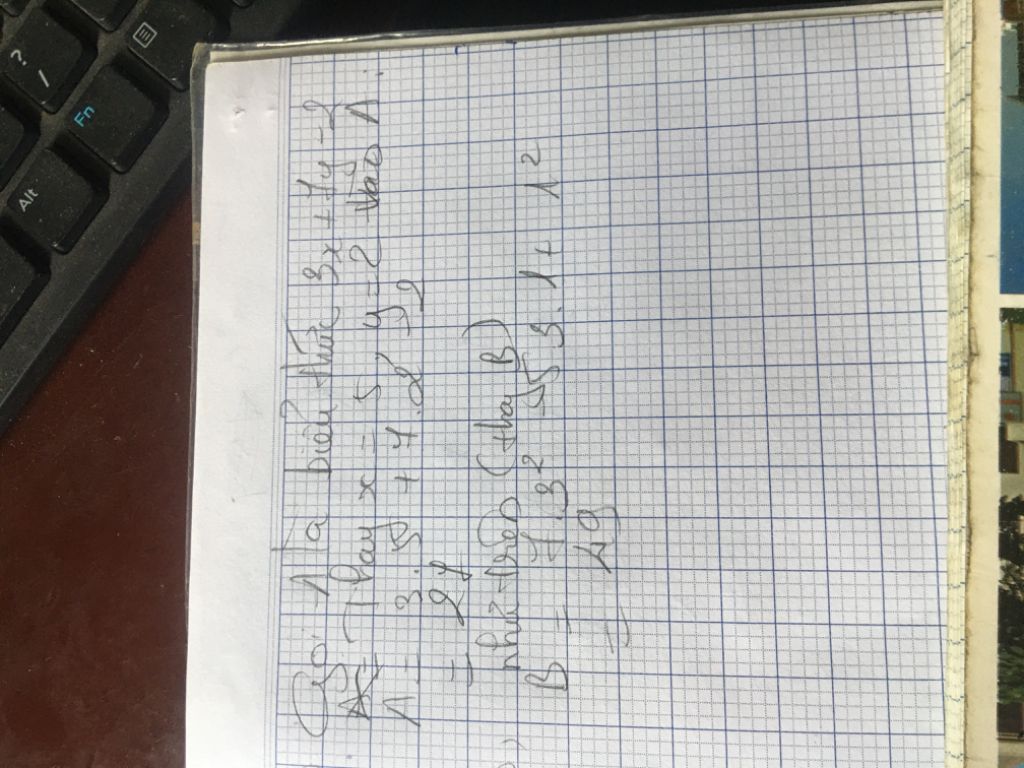 Gọi A là biểu thức 3x + 7y - 2
Thay x = 5 y = 2 vào A.
A = 3.5 + 7.2 - 2
= 27
như trên (thay B)
B = 7.3² 5 3.1 + 1²
= 49
? /
Fn
Alt